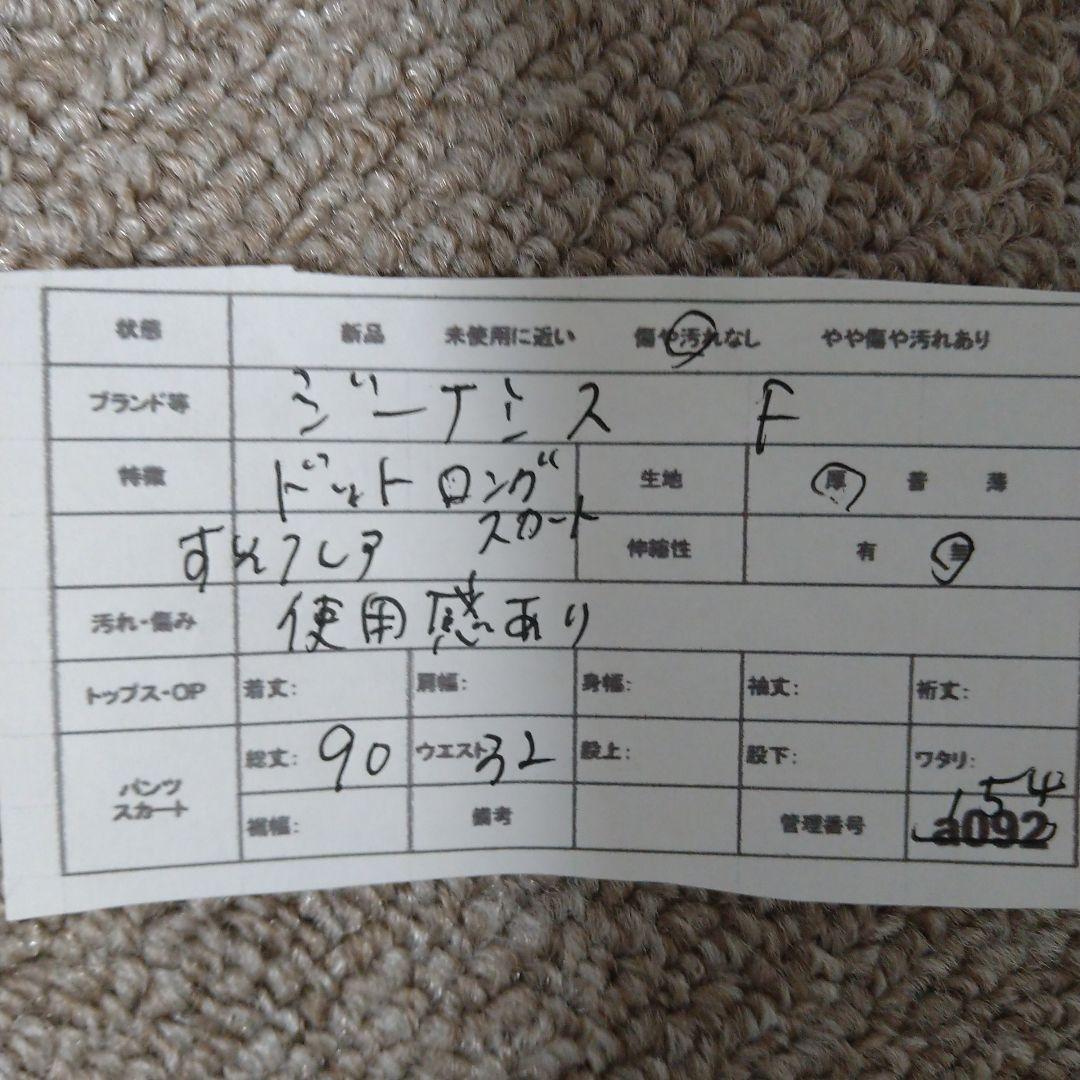 状態 新品 未使用に近い 傷や汚れなし やや傷や汚れあり
ブランド等 ジーナシス F
特徴 ドットロング 生地 厚 普 薄
スカート
すそフレア 伸縮性 有 無
汚れ・傷み 使用感あり
トップス・OP 着丈: 肩幅: 身幅: 袖丈: 裄丈:
パンツ スカート 総丈: 90 ウエスト 32 股上: 股下: ワタリ:
154
裾幅: 備考 管理番号 a092